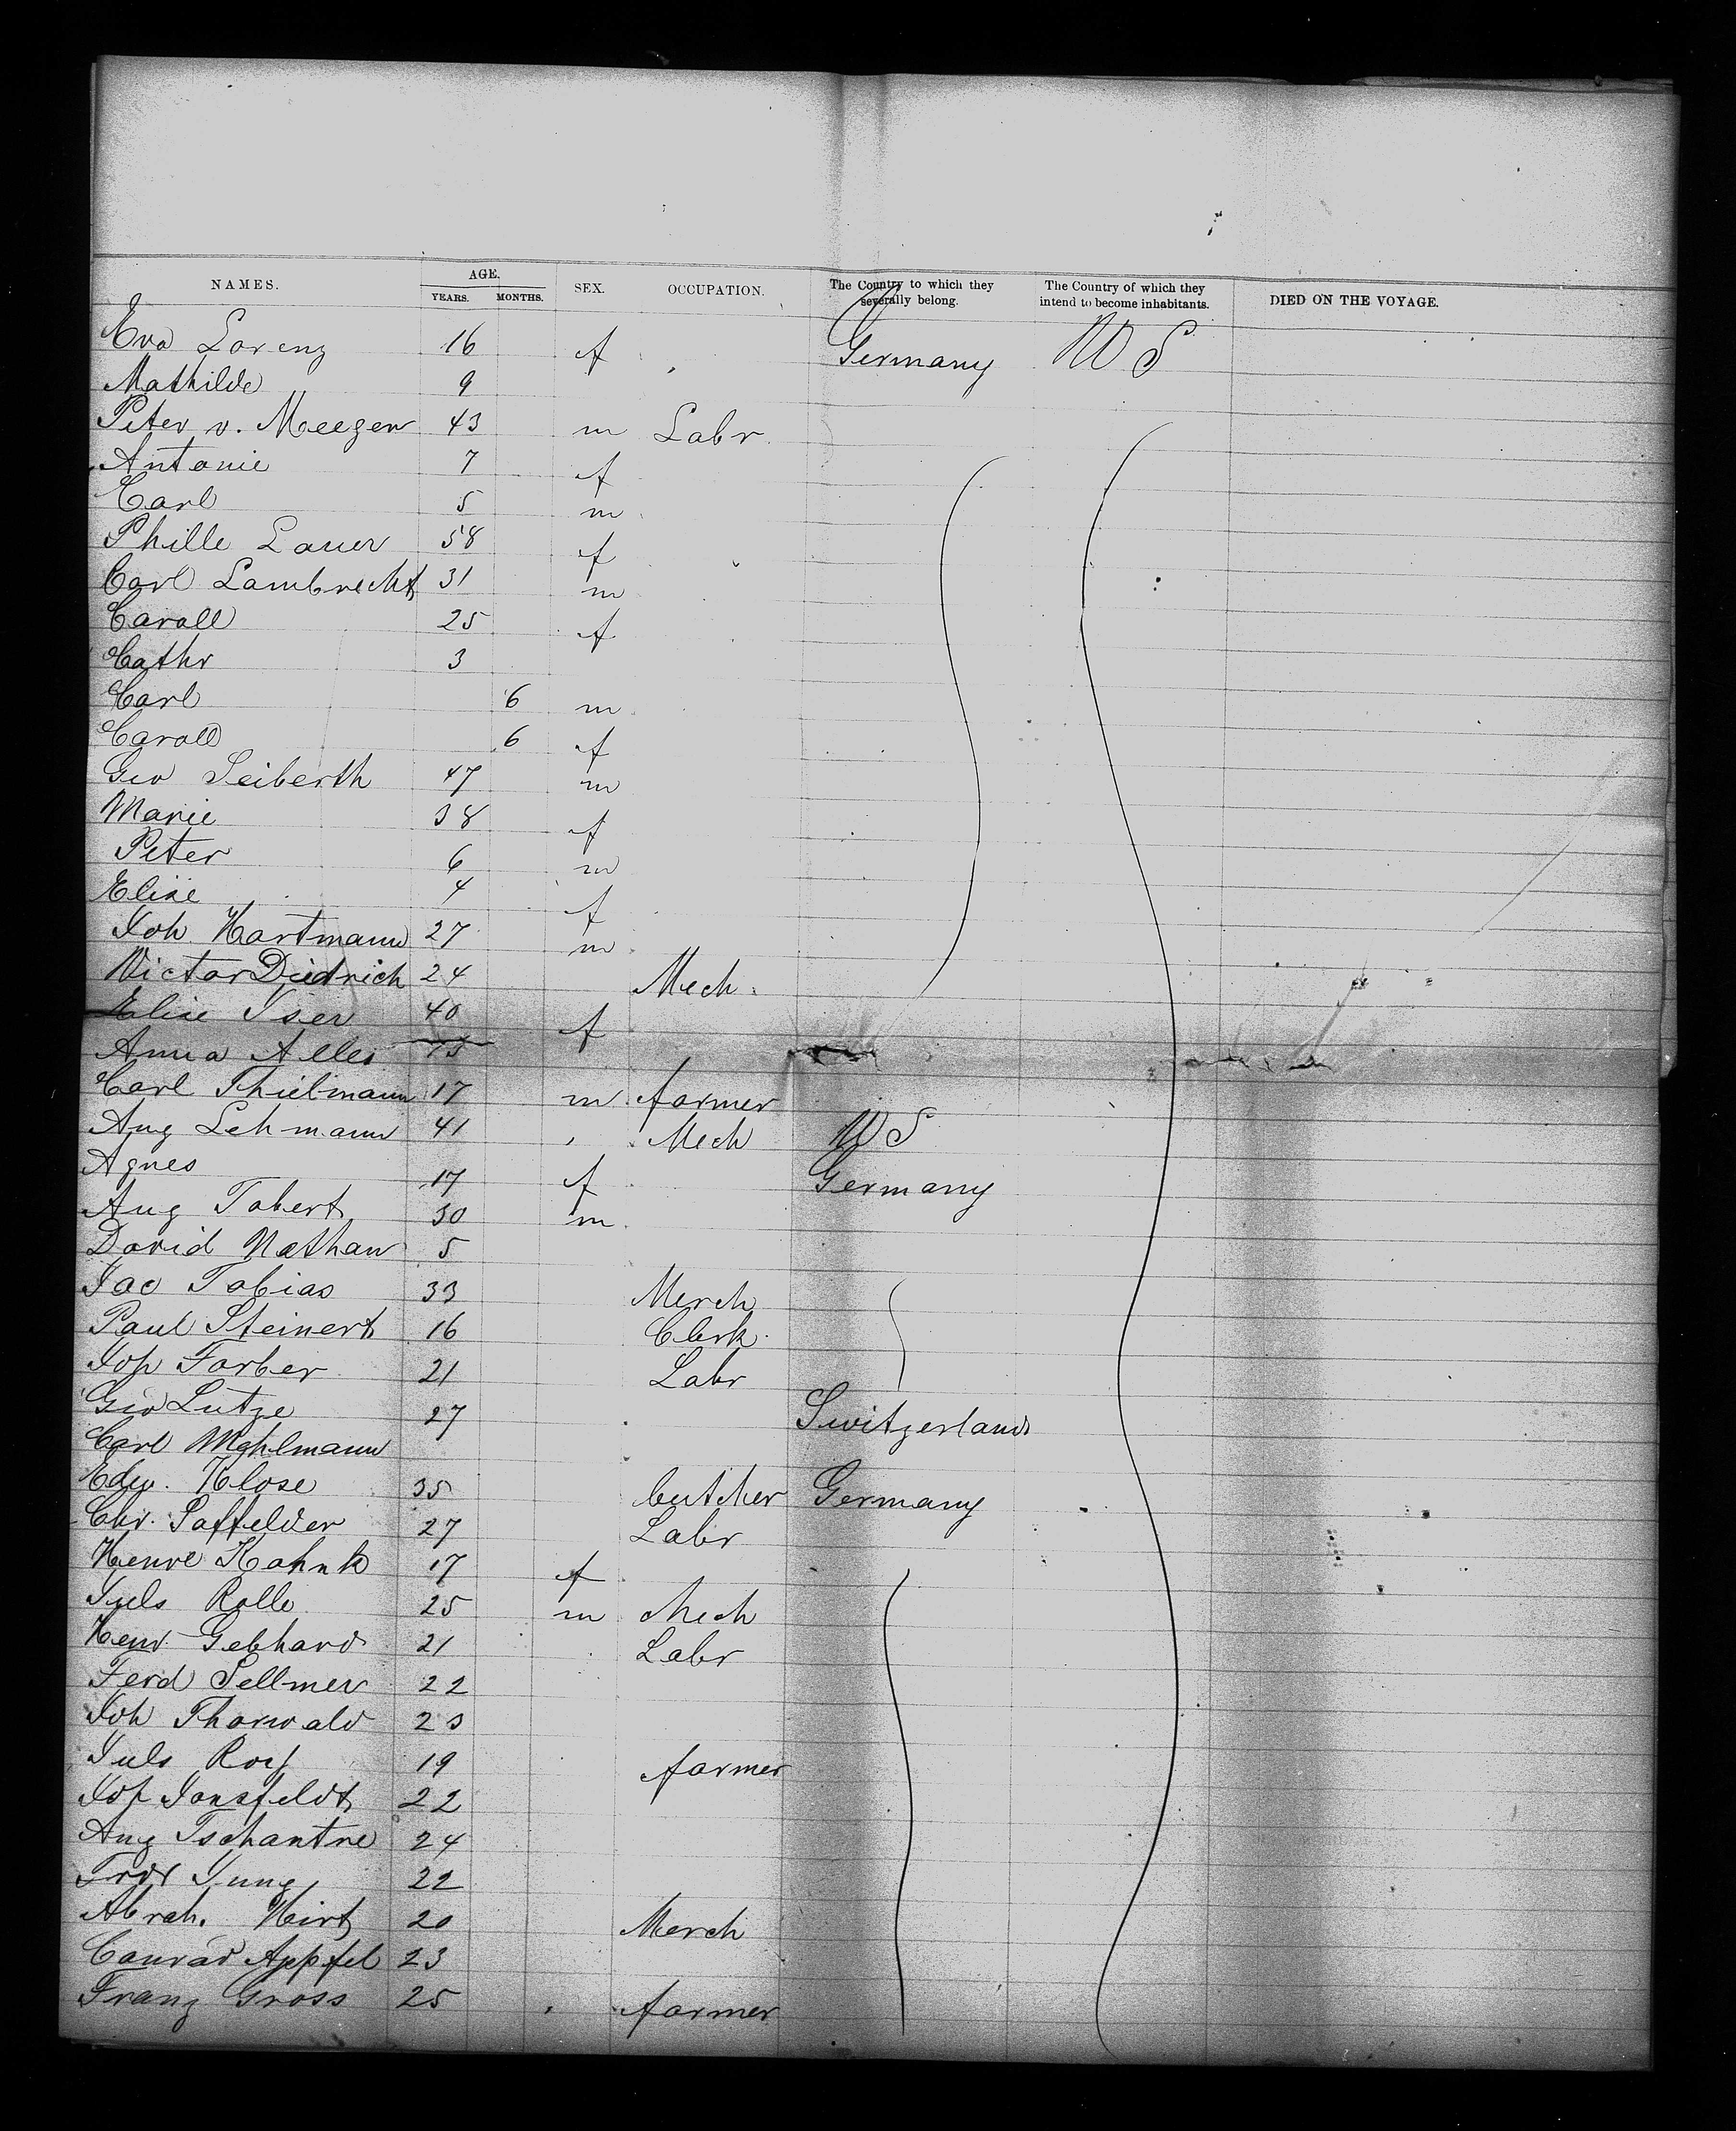 NAMES. AGE. YEARS. MONTHS. SEX. OCCUPATION. The Country to which they severally belong. The Country of which they intend to become inhabitants. DIED ON THE VOYAGE.
Eva Lorenz 16 f Germany US
Mathilde 9
Peter v. Meegen 43 m Labr
Antonie 7 f
Carl 5 m
Phille Lauer 58 f
Carl Lambrecht 31 m
Caroll 25 f
Cathr 3
Carl 6 m
Caroll 6 f
Geo Seiberth 47 m
Marie 38 f
Peter 6 m
Elise 4 f
Joh Hartmann 27 m
Victor Diedrich 24 Mech
Elise Iser 40 f
Anna Alles
Carl Thielmann 17 m farmer
Aug Lehmann 41 Mech US
Agnes 17 f Germany
Aug Tobert 30 m
David Nathan 5
Jac Tobias 33 Merch
Paul Steinert 16 Clerk
Jos Farber 21 Labr
Geo Lutze 27 Switzerland
Carl
Edw. Klose 35 butcher Germany
Chr. Saffelder 27 Labr
Henre Kohnk 17 f
Juls Rolle 25 m Mech
Henr Gebhard 21 Labr
Ferd Sellmer 22
Joh Thorwald 23
Juls 19 farmer
Jos Jonsfeldt 22
Aug Tschantre 24
Fredr Jung 22
Abrah. Hirt 20 Merch
Conrad Appfel 23
Franz Gross 25 farmer